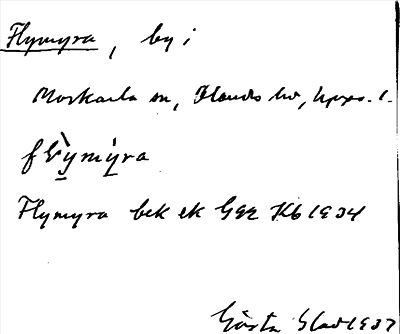 Flymyra, by i
Morkarla sn, Olands hd, Upps. l.
Flymyra bek ek G92 Kb 1934
Gösta Blad 1937